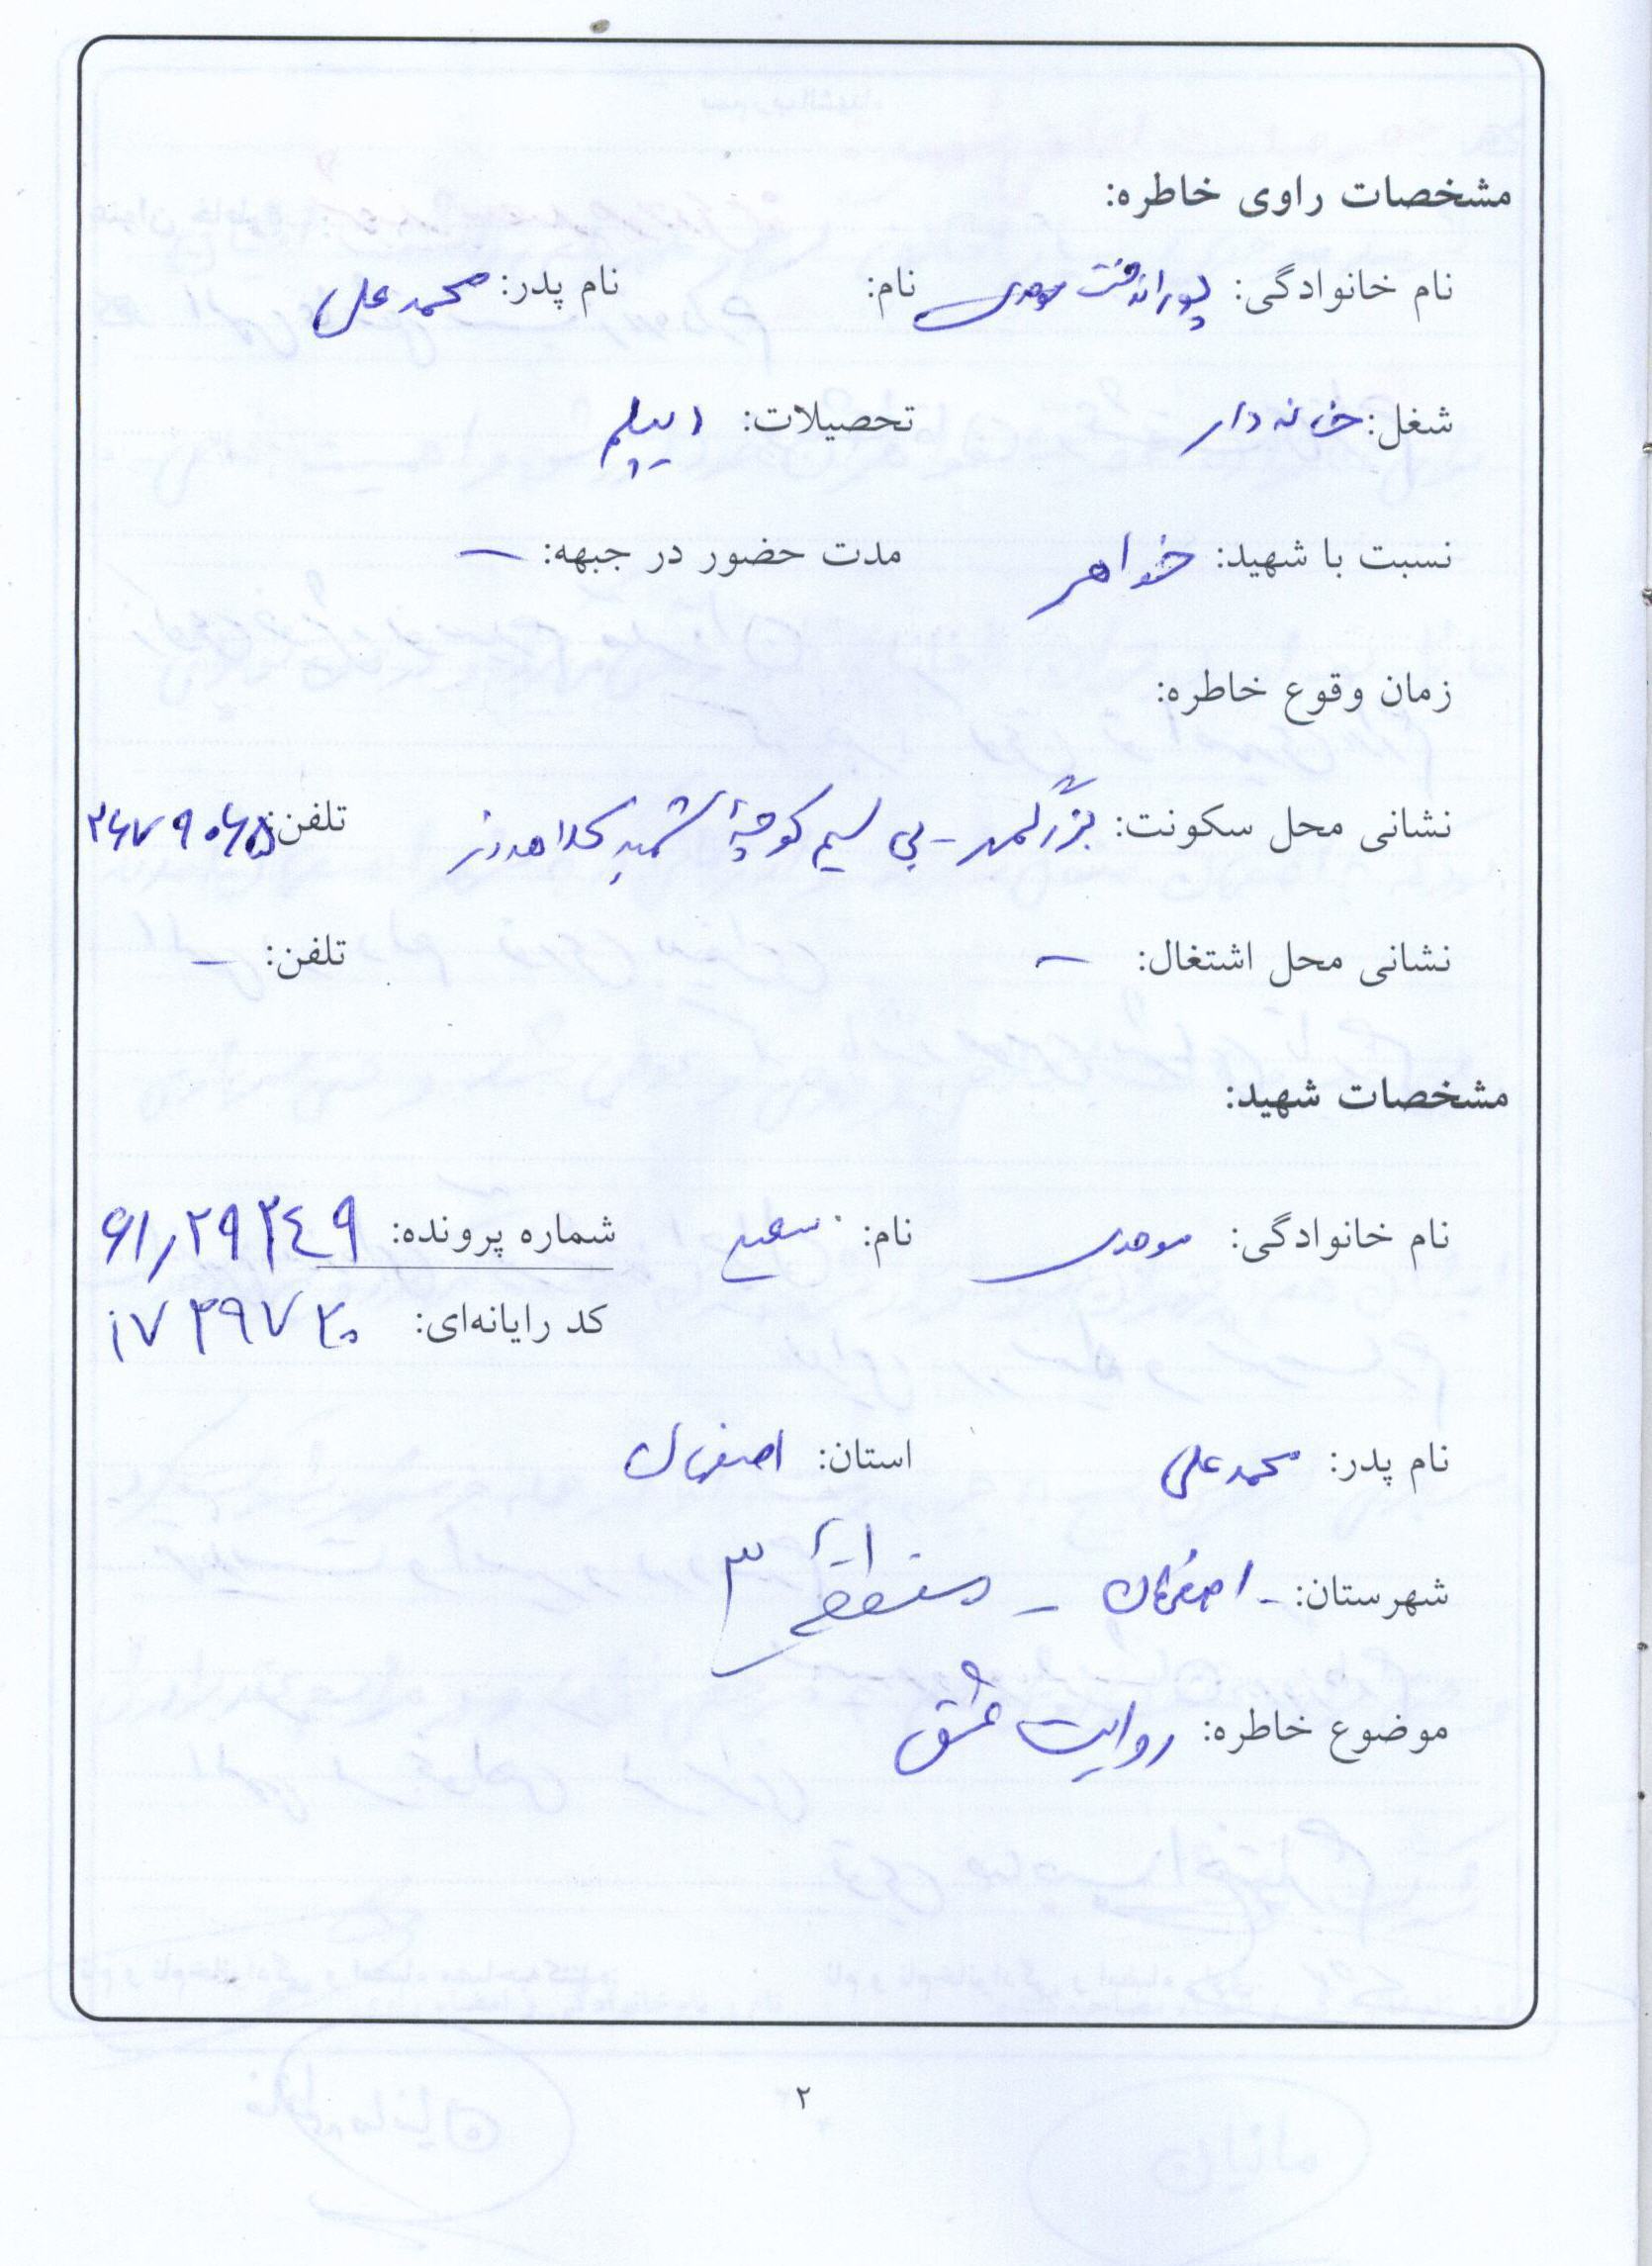 مشخصات راوی خاطره:
نام خانوادگی: پوراندخت موحدی نام: نام پدر: محمدعلی
شغل: خانه دار تحصیلات: دیپلم
نسبت با شهید: خواهر مدت حضور در جبهه: –
زمان وقوع خاطره:
نشانی محل سکونت: بزرگمهر – بی سیم کوچهٔ شهید کلاهدوز تلفن: ۳۶۷۹۰۶۵
نشانی محل اشتغال: – تلفن: –
مشخصات شهید:
نام خانوادگی: موحدی نام: سعید شماره پرونده: ۶۱/۲۹۲۴۹
کد رایانه‌ای: ۱۷۳۹۷۲۰
نام پدر: محمدعلی استان: اصفهان
شهرستان: – اصفهان – منطقهٔ ۳
موضوع خاطره: روایت عشق
۲